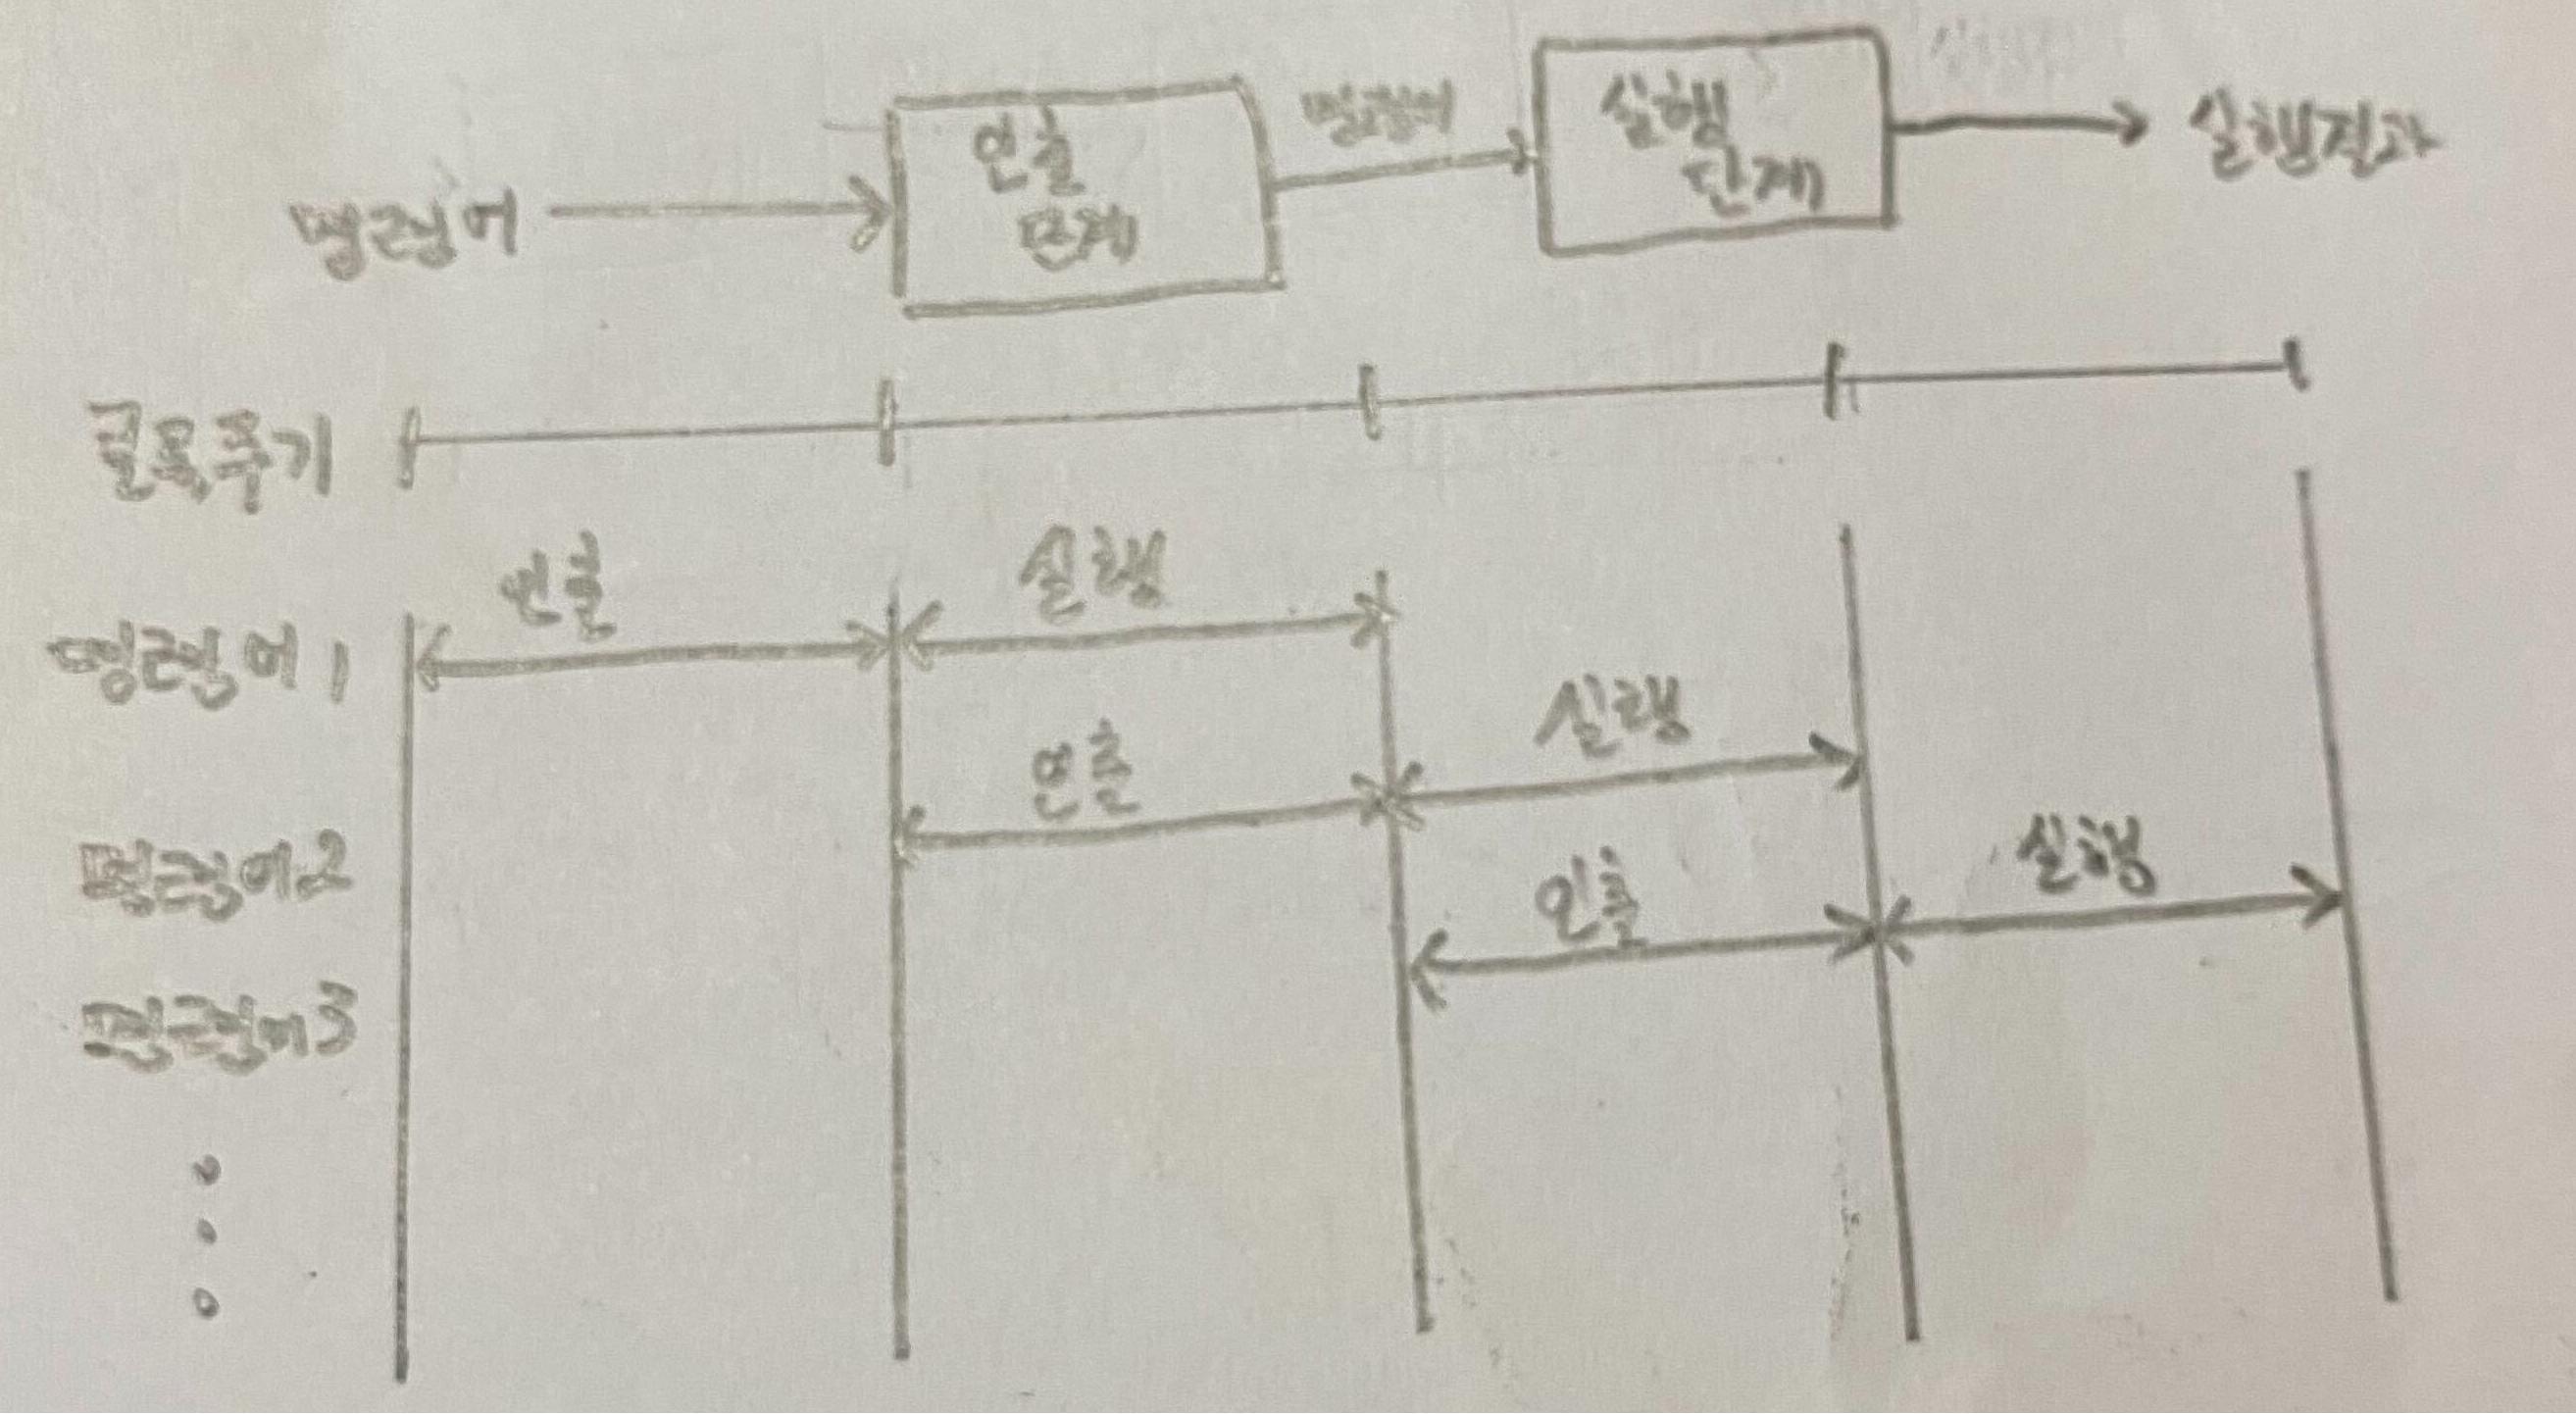 명령어
인출
단계
명령어
실행
단계
실행결과
클록주기
인출
실행
명령어 1
인출
실행
명령어2
인출
실행
명령어3